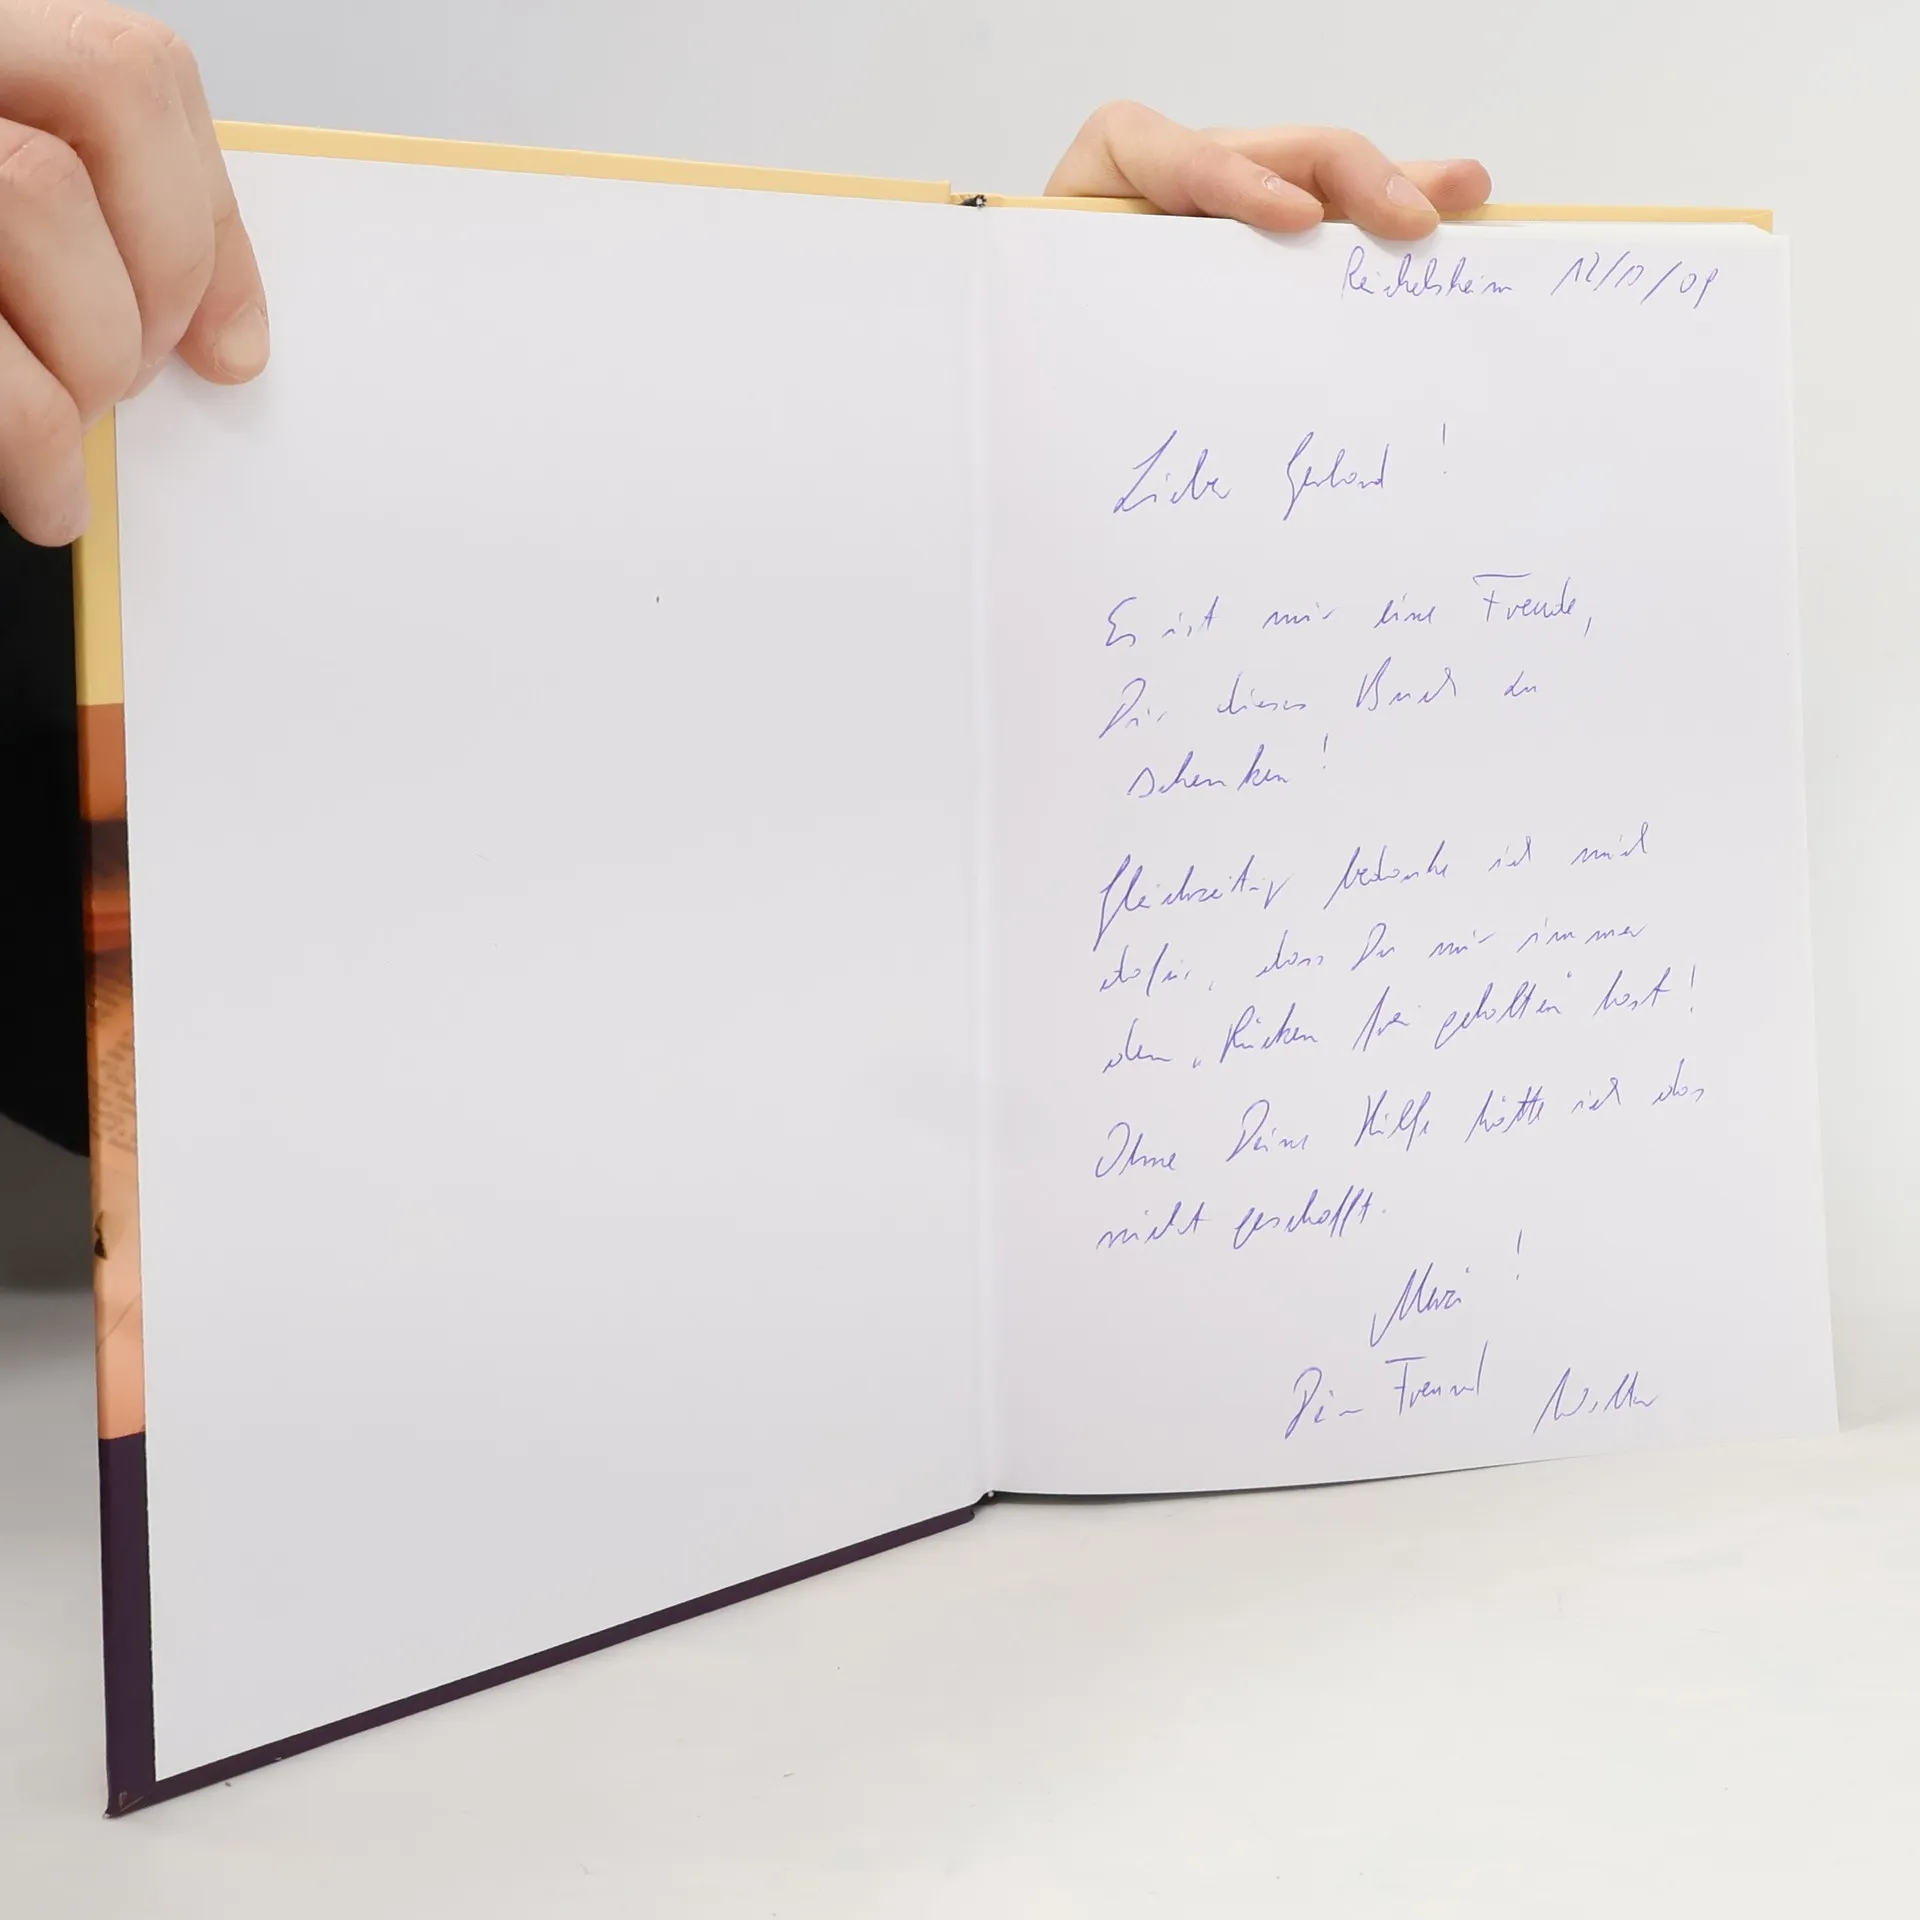 Reichelsheim 12/10/09
Lieber Gerhard!
Es ist mir eine Freude,
Dir dieses Buch zu
schenken!
Gleichzeitig bedanke ich mich
dafür, dass Du mir immer
den „Rücken frei gehalten" hast!
Ohne Deine Hilfe hätte ich das
nicht geschafft.
Merci!
Dein Freund